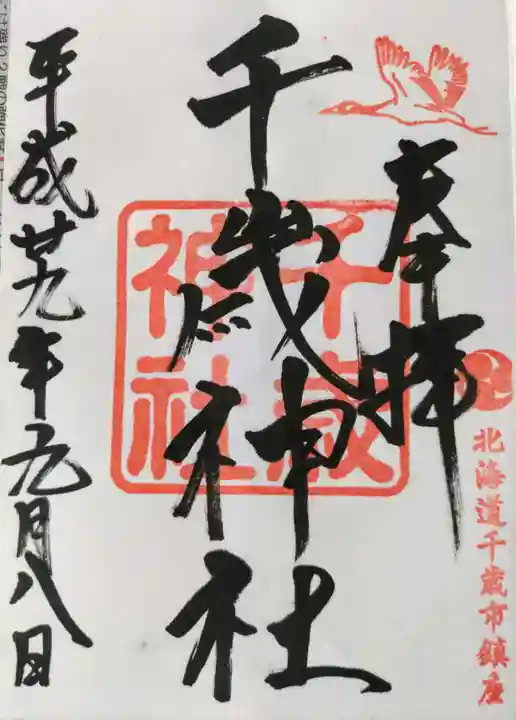 奉拝
北海道千歳市鎮座
千歳神社
千歳
神社
平成廿九年元月八日